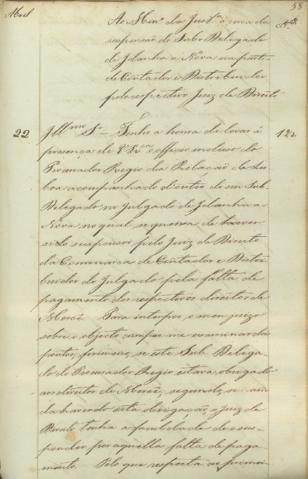 Abril
58
Ao Min.º da Just.ª á cerca da
suspensão do Sub Delegado
de Idanha a Nova na parte
de Contador e Distribuidor
pelo respectivo Juiz de Direito
N.º
22
Ill.mo Sr. Tenho a honra de levar á
122
presença de V. Ex.ª o officio incluso do
Procurador Regio da Relação de Lis
boa acompanhado d'outro de um Sub
Delegado no Julgado de Idanha a
Nova no qual se queixa de haver
sido suspenso pelo Juiz de Direito
da Comarca de Contador e Distri
buidor do Julgado pela falta de
pagamento dos respectivos direitos de
Mercê. Para interpor o meu juizo
sobre o objecto cumpre me examinar dois
pontos, primeiro, se este Sub Delega
do do Procurador Regio estava obrigado
aos direitos de Mercê, segundo, se ain
da havendo esta obrigação, o Juiz de
Direito tinha a faculdade de o sus
pender por aquella falta de paga
mento. Pelo que respeita ao primei